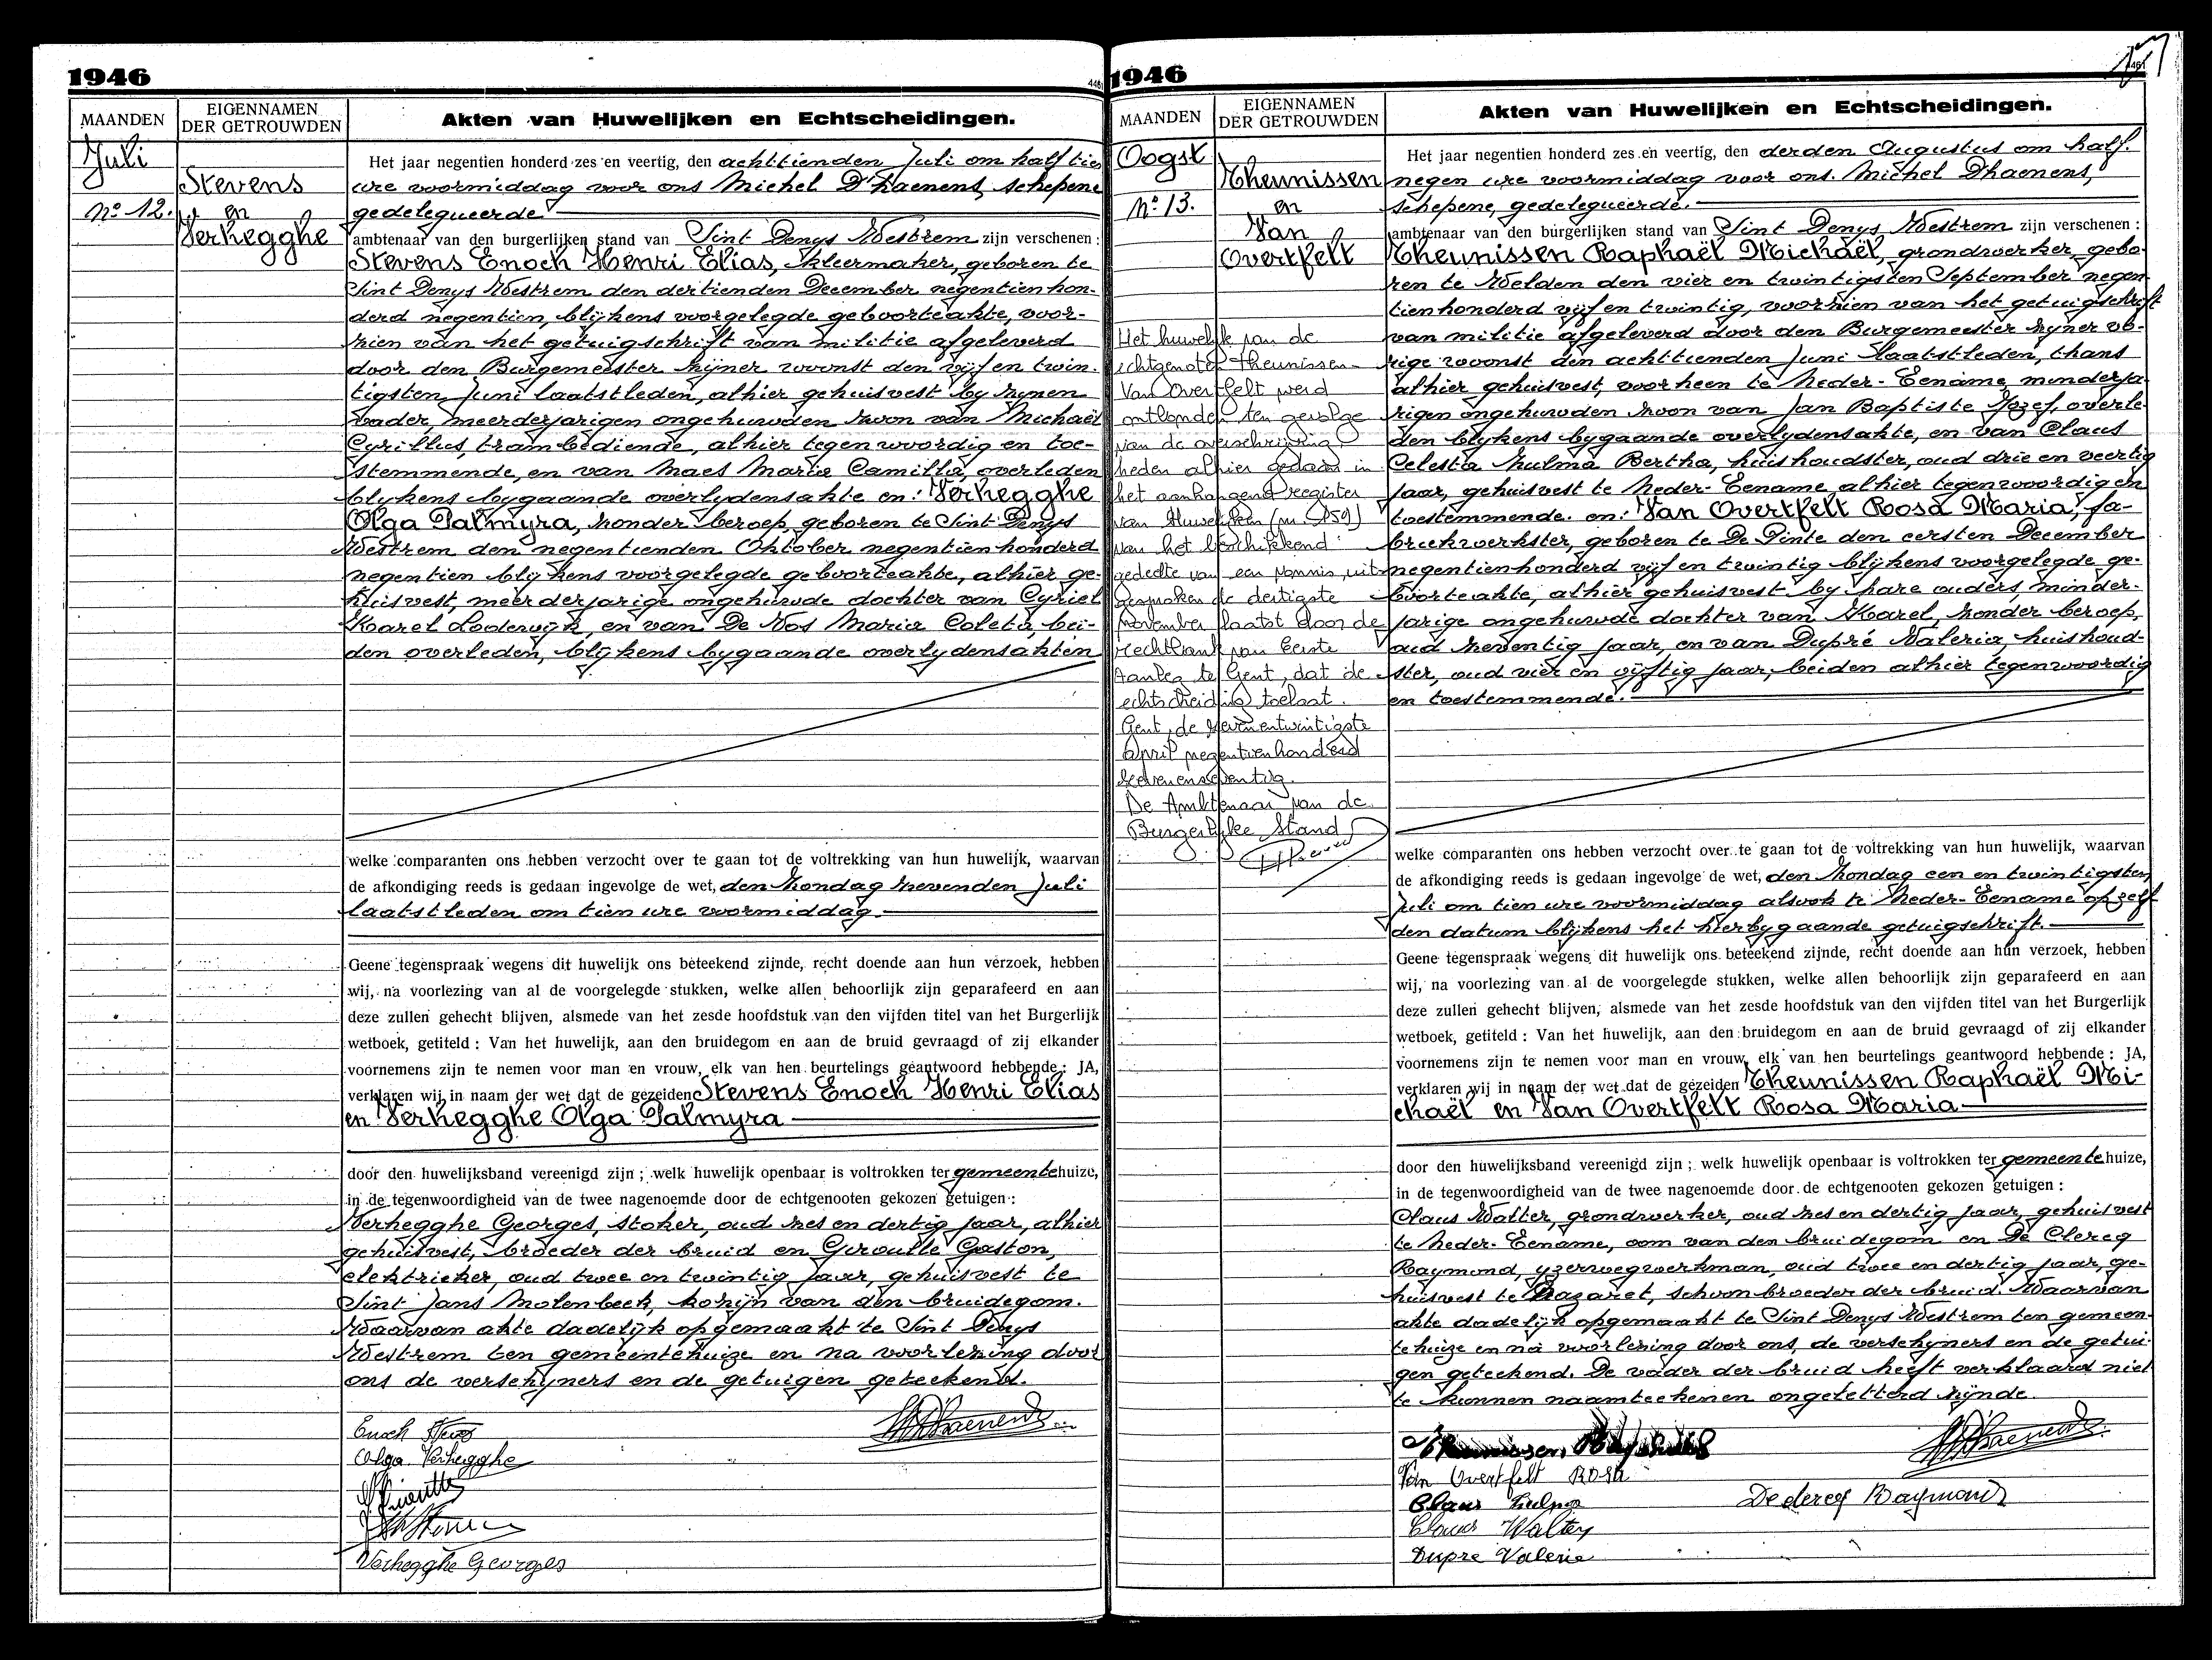 1946
MAANDEN
EIGENNAMEN
DER GETROUWDEN
Akten van Huwelijken en Echtscheidingen.
Juli
No 12.
Stevens
en
Verhegghe
Het jaar negentien honderd zes en veertig, den achttienden Juli om half tien
ure voormiddag voor ons Michel D'haenens, schepene
gedelegueerde
ambtenaar van den burgerlijken stand van Sint Denys Westrem zijn verschenen :
Stevens Enoch Henri Elias, kleermaker, geboren te
Sint Denys Westrem den dertienden December negentien hon-
derd negentien, blijkens voorgelegde geboorteakte, voor-
zien van het getuigschrift van militie afgeleverd
door den Burgemeester zijner woonst den vijf en twin-
tigsten Juni laatstleden, alhier gehuisvest by zynen
vader, meerderjarigen ongehuwden zoon van Michaël
Cyrillus, trambediende, alhier tegenwoordig en toe-
stemmende, en van Maes Maria Camilla, overleden
blykens bygaande overlydensakte en: Verhegghe
Olga Palmyra, zonder beroep, geboren te Sint Denys
Westrem den negentienden Oktober negentienhonderd
negentien blijkens voorgelegde geboorteakte, alhier ge-
huisvest, meerderjarige ongehuwde dochter van Cyriel
Karel Lodewyk, en van De Vos Maria Coleta, bei-
den overleden, blijkens bygaande overlydensakten
welke comparanten ons hebben verzocht over te gaan tot de voltrekking van hun huwelijk, waarvan
de afkondiging reeds is gedaan ingevolge de wet, den Zondag zevenden Juli
laatstleden om tien ure voormiddag.
Geene tegenspraak wegens dit huwelijk ons beteekend zijnde, recht doende aan hun verzoek, hebben
wij, na voorlezing van al de voorgelegde stukken, welke allen behoorlijk zijn geparafeerd en aan
deze zullen gehecht blijven, alsmede van het zesde hoofdstuk van den vijfden titel van het Burgerlijk
wetboek, getiteld : Van het huwelijk, aan den bruidegom en aan de bruid gevraagd of zij elkander
voornemens zijn te nemen voor man en vrouw, elk van hen beurtelings geantwoord hebbende : JA,
verklaren wij in naam der wet dat de gezeiden Stevens Enoch Henri Elias
en Verhegghe Olga Palmyra
door den huwelijksband vereenigd zijn ; welk huwelijk openbaar is voltrokken ter gemeentehuize,
in de tegenwoordigheid van de twee nagenoemde door de echtgenooten gekozen getuigen :
Verhegghe Georges, stoker, oud zes en dertig jaar, alhier
gehuisvest, broeder der bruid en Giroulle Gaston,
elektrieker, oud twee en twintig jaar, gehuisvest te
Sint Jans Molenbeek, kozijn van den bruidegom.
Waarvan akte dadelijk opgemaakt te Sint Denys
Westrem ten gemeentehuize en na voorlezing door
ons de verschijners en de getuigen geteekend.
Enoch Stevens
Olga Verhegghe
Verhegghe Georges
1946
MAANDEN
EIGENNAMEN
DER GETROUWDEN
Akten van Huwelijken en Echtscheidingen.
Oogst
No 13.
Theunissen
en
Van
Overtfelt
Het huwelijk van de
echtgenoten Theunissen-
Van Overtfelt werd
ontbonden ten gevolge
van de overschrijving
heden alhier gedaan in
het aanhangend register
van Huwelijken (nr 159)
van het beschikkend
gedeelte van een vonnis, uit-
gesproken de dertigste
november laatst door de
rechtbank van Eerste
Aanleg te Gent, dat de
echtscheiding toelaat.
Gent, de zevenentwintigste
april negentienhonderd
zevenenzeventig.
De Ambtenaar van de
Burgerlijke Stand
Het jaar negentien honderd zes en veertig, den derden Augustus om half
negen ure voormiddag voor ons Michel Dhaenens,
schepene, gedelegueerde.
ambtenaar van den burgerlijken stand van Sint Denys Westrem zijn verschenen :
Theunissen Raphaël Michaël, grondwerker, gebo-
ren te Welden den vier en twintigsten September negen-
tienhonderd vijf en twintig, voorzien van het getuigschrift
van militie afgeleverd door den Burgemeester zyner vo-
rige woonst den achttienden Juni laatstleden, thans
alhier gehuisvest, voorheen te Neder-Eename, minderja-
rigen ongehuwden zoon van Jan Baptiste Jozef, overle-
den blykens bygaande overlydensakte, en van Claus
Celestia Zulma Bertha, huishoudster, oud drie en veertig
jaar, gehuisvest te Neder-Eename alhier tegenwoordig en
toestemmende. en: Van Overtfelt Rosa Maria, fa-
briekwerkster, geboren te De Pinte den eersten December
negentienhonderd vijf en twintig blijkens voorgelegde ge-
boorteakte, alhier gehuisvest by hare ouders, minder-
jarige ongehuwde dochter van Karel, zonder beroep,
oud zeventig jaar, en van Dupré Valeria, huishoud-
ster, oud vier en vijftig jaar, beiden alhier tegenwoordig
en toestemmende.
welke comparanten ons hebben verzocht over te gaan tot de voltrekking van hun huwelijk, waarvan
de afkondiging reeds is gedaan ingevolge de wet, den Zondag een en twintigsten
Juli om tien ure voormiddag alsook te Neder-Eename op zelf
den datum blijkens het hierbygaande getuigschrift.
Geene tegenspraak wegens dit huwelijk ons beteekend zijnde, recht doende aan hun verzoek, hebben
wij, na voorlezing van al de voorgelegde stukken, welke allen behoorlijk zijn geparafeerd en aan
deze zullen gehecht blijven, alsmede van het zesde hoofdstuk van den vijfden titel van het Burgerlijk
wetboek, getiteld : Van het huwelijk, aan den bruidegom en aan de bruid gevraagd of zij elkander
voornemens zijn te nemen voor man en vrouw, elk van hen beurtelings geantwoord hebbende : JA,
verklaren wij in naam der wet dat de gezeiden Theunissen Raphaël Mi-
chaël en Van Overtfelt Rosa Maria
door den huwelijksband vereenigd zijn ; welk huwelijk openbaar is voltrokken ter gemeentehuize,
in de tegenwoordigheid van de twee nagenoemde door de echtgenooten gekozen getuigen :
Claus Walter, grondwerker, oud zes en dertig jaar, gehuisvest
te Neder-Eename, oom van den bruidegom en De Clercq
Raymond, yzerwegwerkman, oud twee en dertig jaar, ge-
huisvest te Nazaret, schoonbroeder der bruid. Waarvan
akte dadelijk opgemaakt te Sint Denys Westrem ten gemeen-
tehuize en na voorlezing door ons, de verschyners en de getui-
gen geteekend. De vader der bruid heeft verklaard niet
te kunnen naamteekenen ongeletterd zijnde.
Theunissen
Van Overtfelt Rosa
Claus Zulma
Declercq Raymond
Claus Walter
Dupre Valerie